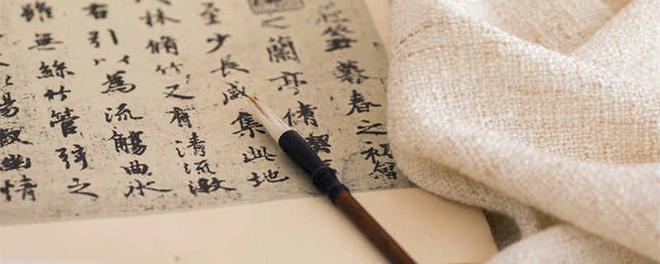 癸丑暮春之初會
之蘭亭脩稧
至少長咸集此地
林脩竹又有清流激
右引以為流觴曲水
雖無絲竹管弦之
暢敘幽情